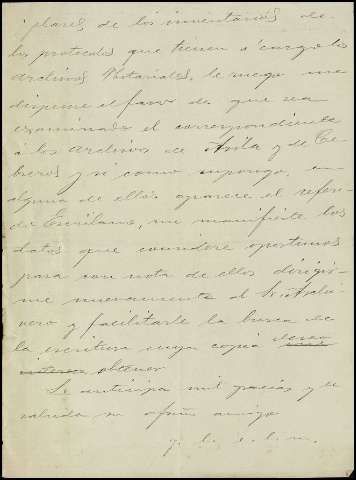 plares de los inventarios de
los protocolos que tienen a cargo los
Archivos Notariales, le ruego me
dispense el favor de que sea
examinado el correspondiente
á los Archivos de Avila y de Ce-
breros y si como supongo, en
alguno de ellos aparece el referi-
do Escribano, me manifieste los
datos que considere oportunos
para con nota de ellos dirigir-
me nuevamente al
y facilitarle la busca de
la escritura cuya copia deseo
obtener
Le anticipa mil gracias y le
saluda su afmo amigo
q. b. s. m.